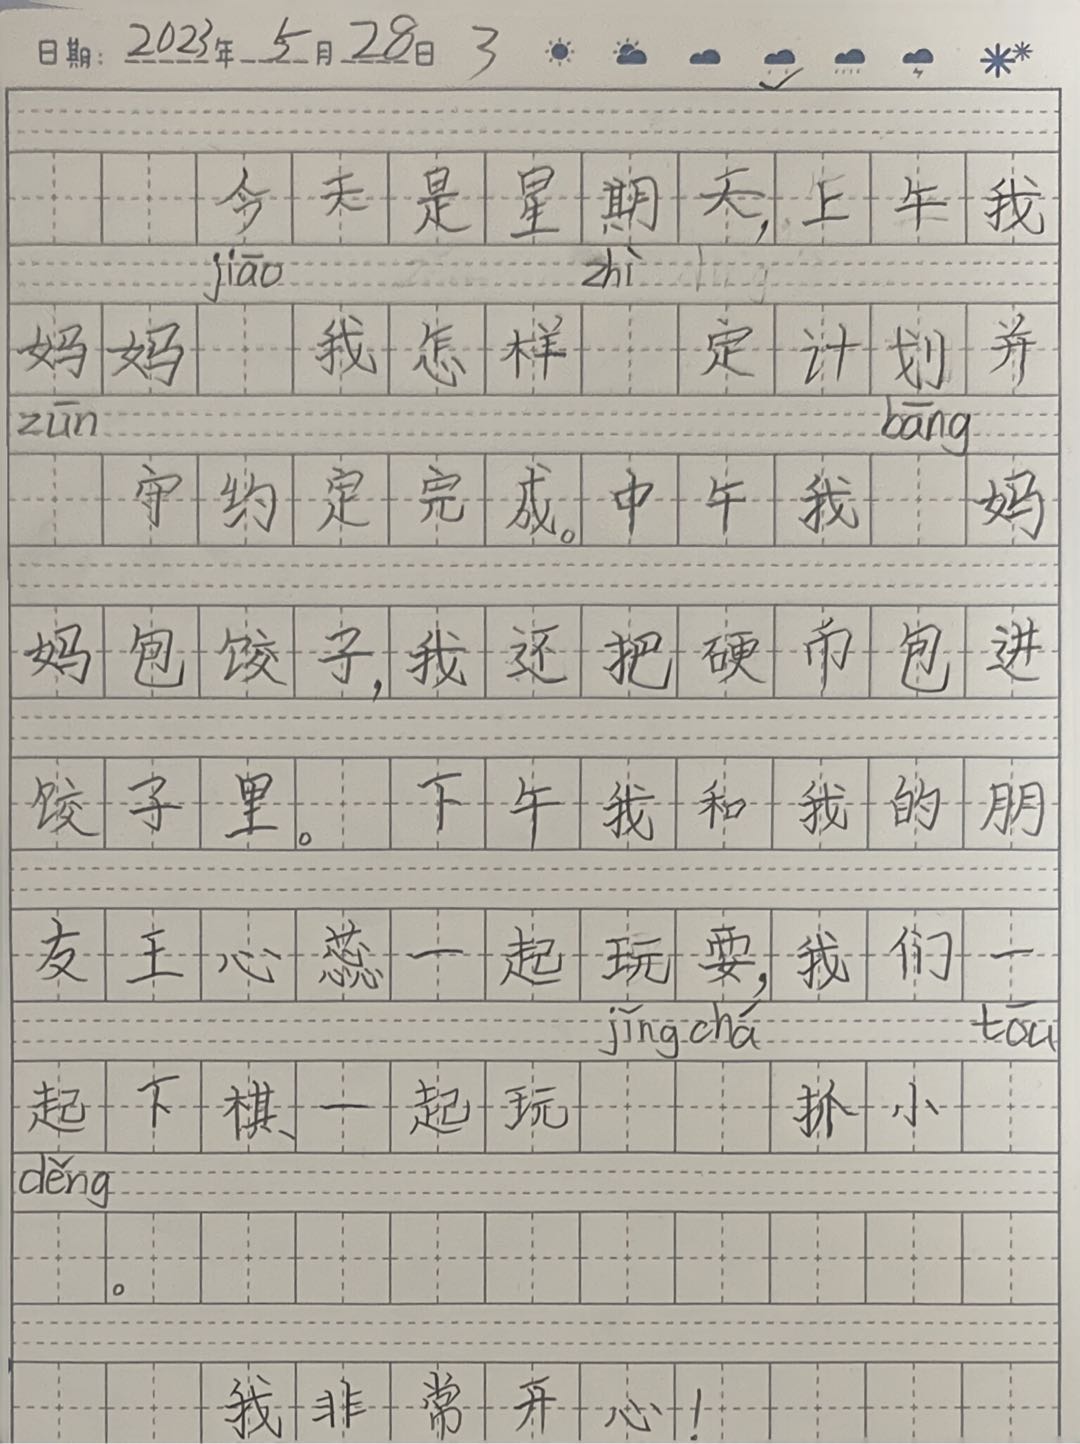 日期: 2023年 5月28日 3
今天是星期天,上午我
jiāo zhì
妈妈 我怎样 定计划并
zūn bāng
守约定完成。中午我 妈
妈包饺子,我还把硬币包进
饺子里。 下午我和我的朋
友王心蕊一起玩耍,我们一
jǐng chá tōu
起下棋、一起玩 抓小
děng
。
我非常开心!